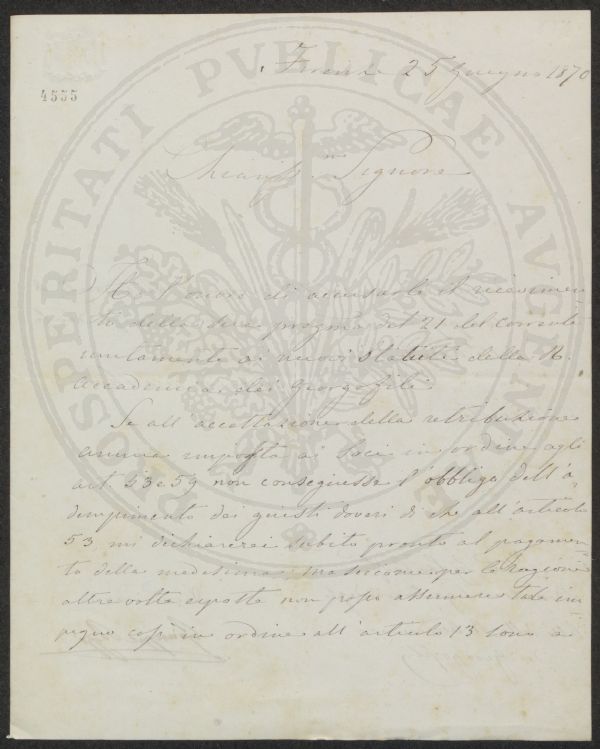 PROSPERITATI PVBLICAE AVGENDAE
4555
Firenze 25 Giugno 1870
Chiariss. mo Signore
Ho l'onore di accusarle il ricevimen-
to della sua pregma del 21 del corrente
unitamente ai nuovi Statuti della R.
Accademia dei Georgofili
Se all'accettazione della retribuzione
annua imposta ai Soci in ordine agli
art. 53 e 59 non conseguisse l'obbligo dell'a-
dempimento dei giusti doveri di che all'articolo
53 mi dichiarerei subito pronto al pagamen-
to della medesima; ma siccome per le ragioni
altre volte esposte non posso assumere tale im-
pegno così in ordine all'articolo 13 sono a